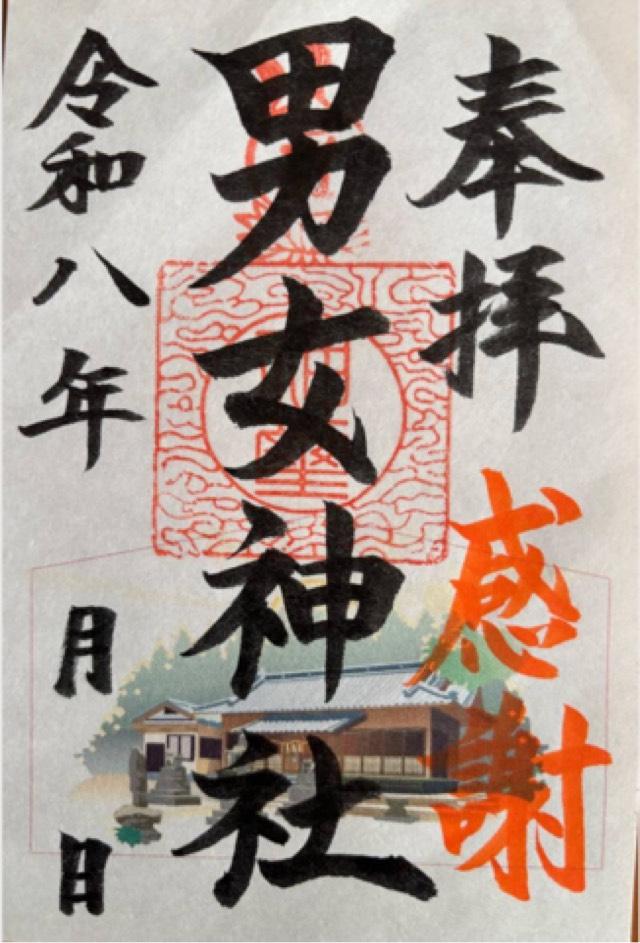 奉拝
感謝
男女神社
令和八年 月 日